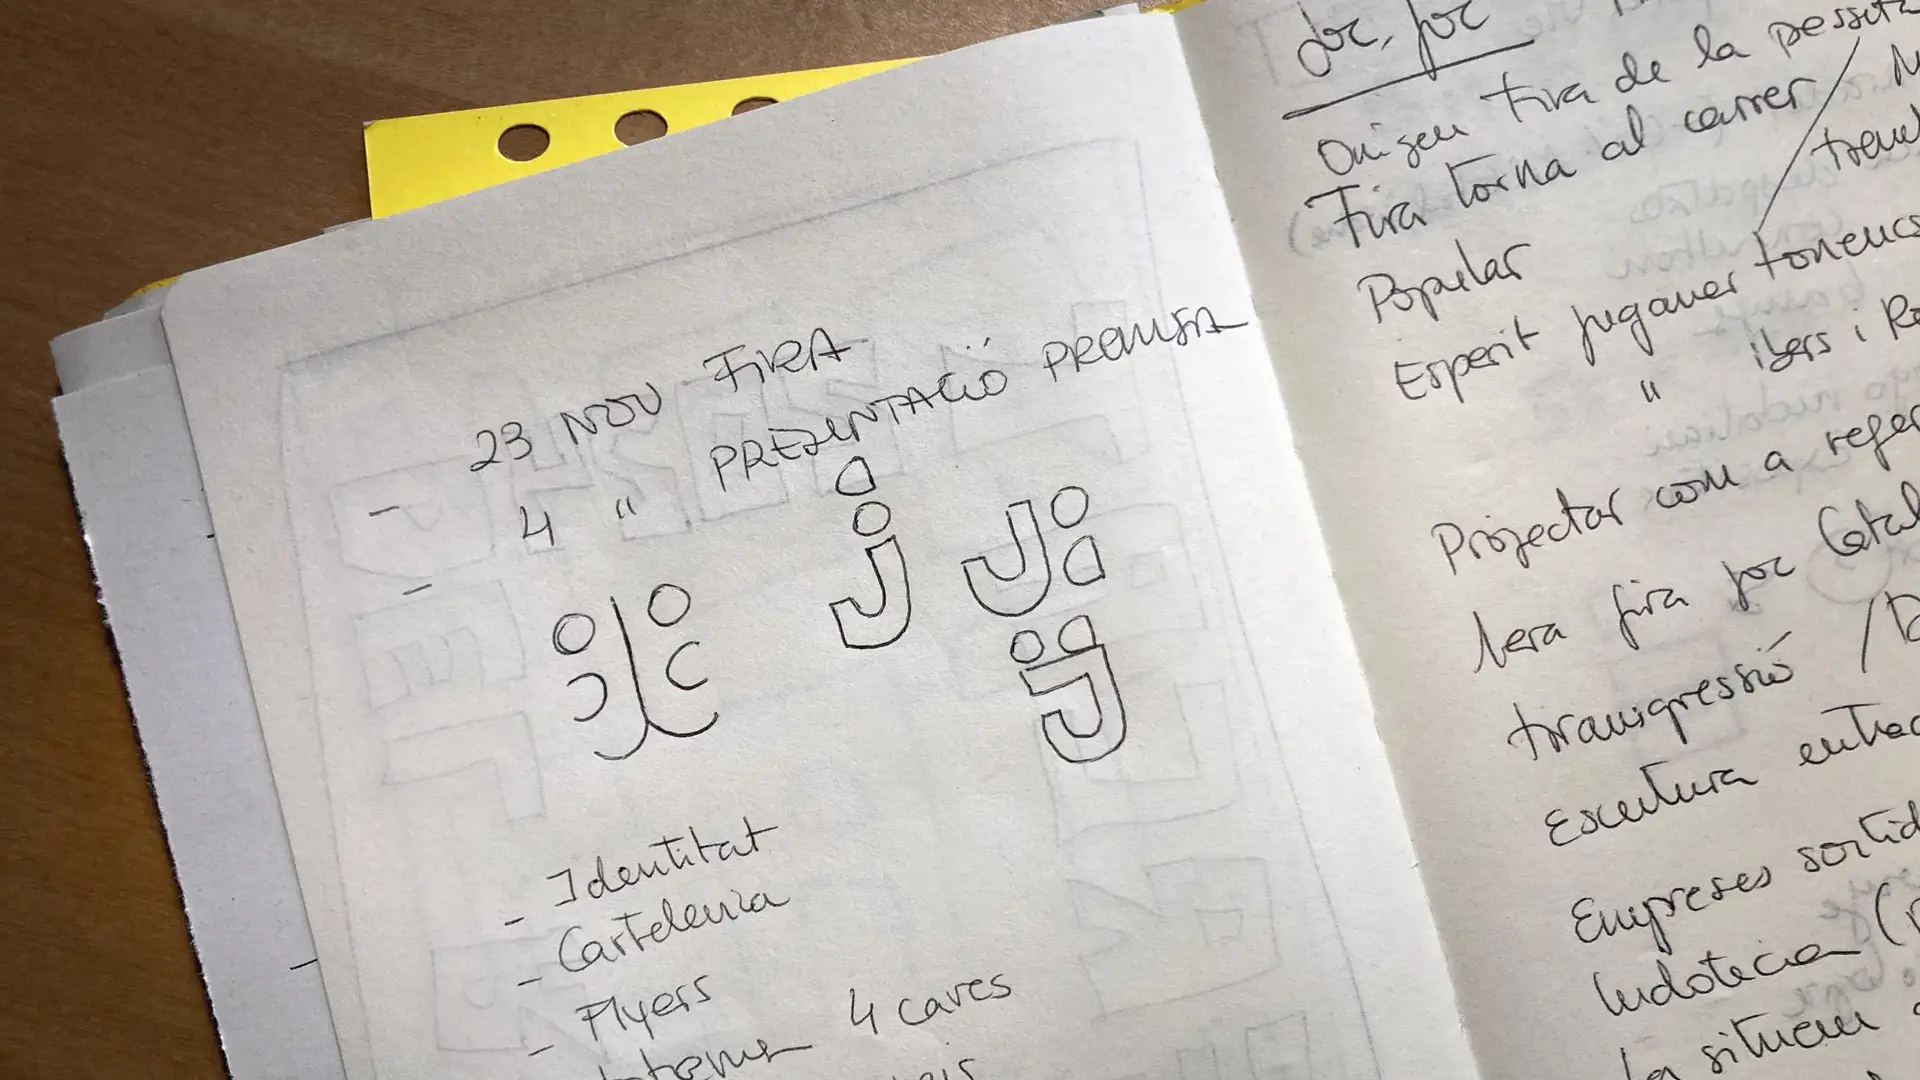 23 NOV FIRA
4 " PRESENTACIÓ PREMSA
- Identitat
- Cartelería
- Flyers
4 cares
Joc, joc
Origen Fira de la pesseta
Fira torna al carrer
Popular
Esperit juganer tonencs
" ibers i Ro
Projectar com a refer
1era fira joc Catal
transgressió /
Escultura entrad
Empreses sortid
ludoteca (
La situem